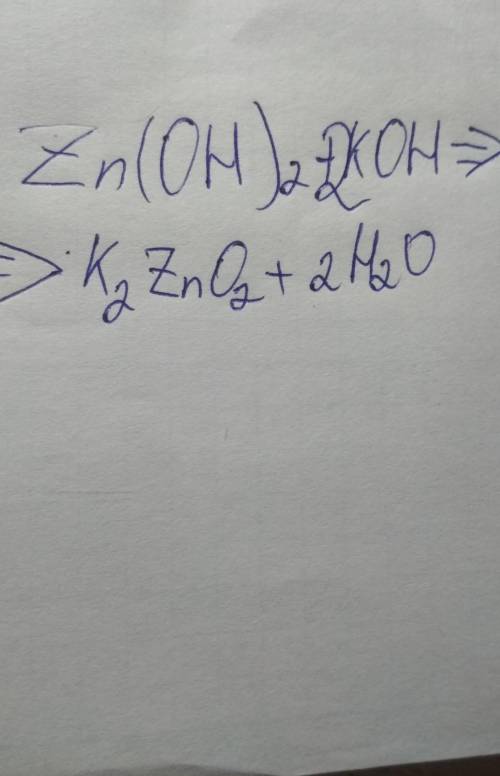 Zn(OH)₂+2KOH ⇒
⇒ K₂ZnO₂ + 2H₂O